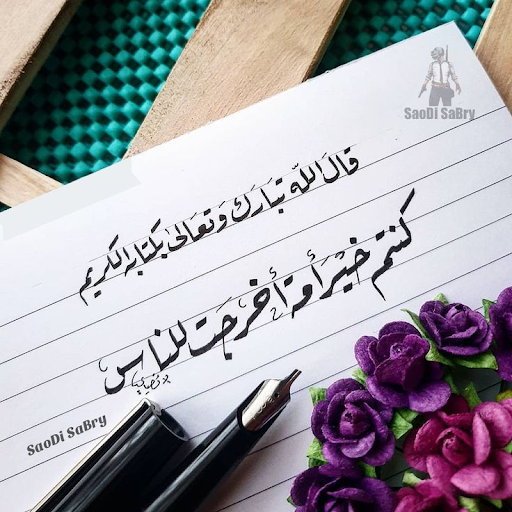 SaoDi SaBry
قال الله تبارك وتعالى بكتابه الكريم
كنتم خير أمة أخرجت للناس
SaoDi SaBry